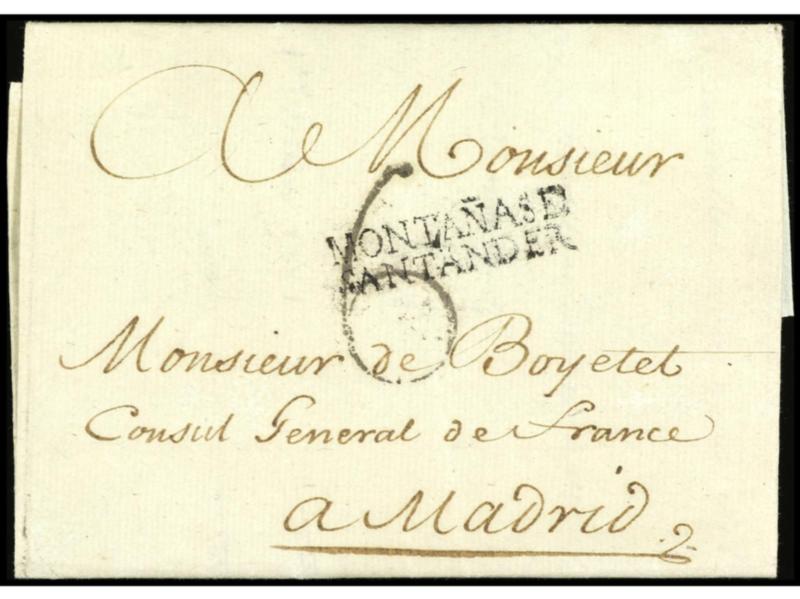 A Monsieur
MONTAÑAS D
SANTANDER
6
Monsieur de Boyetet
Consul General de france
a Madrid